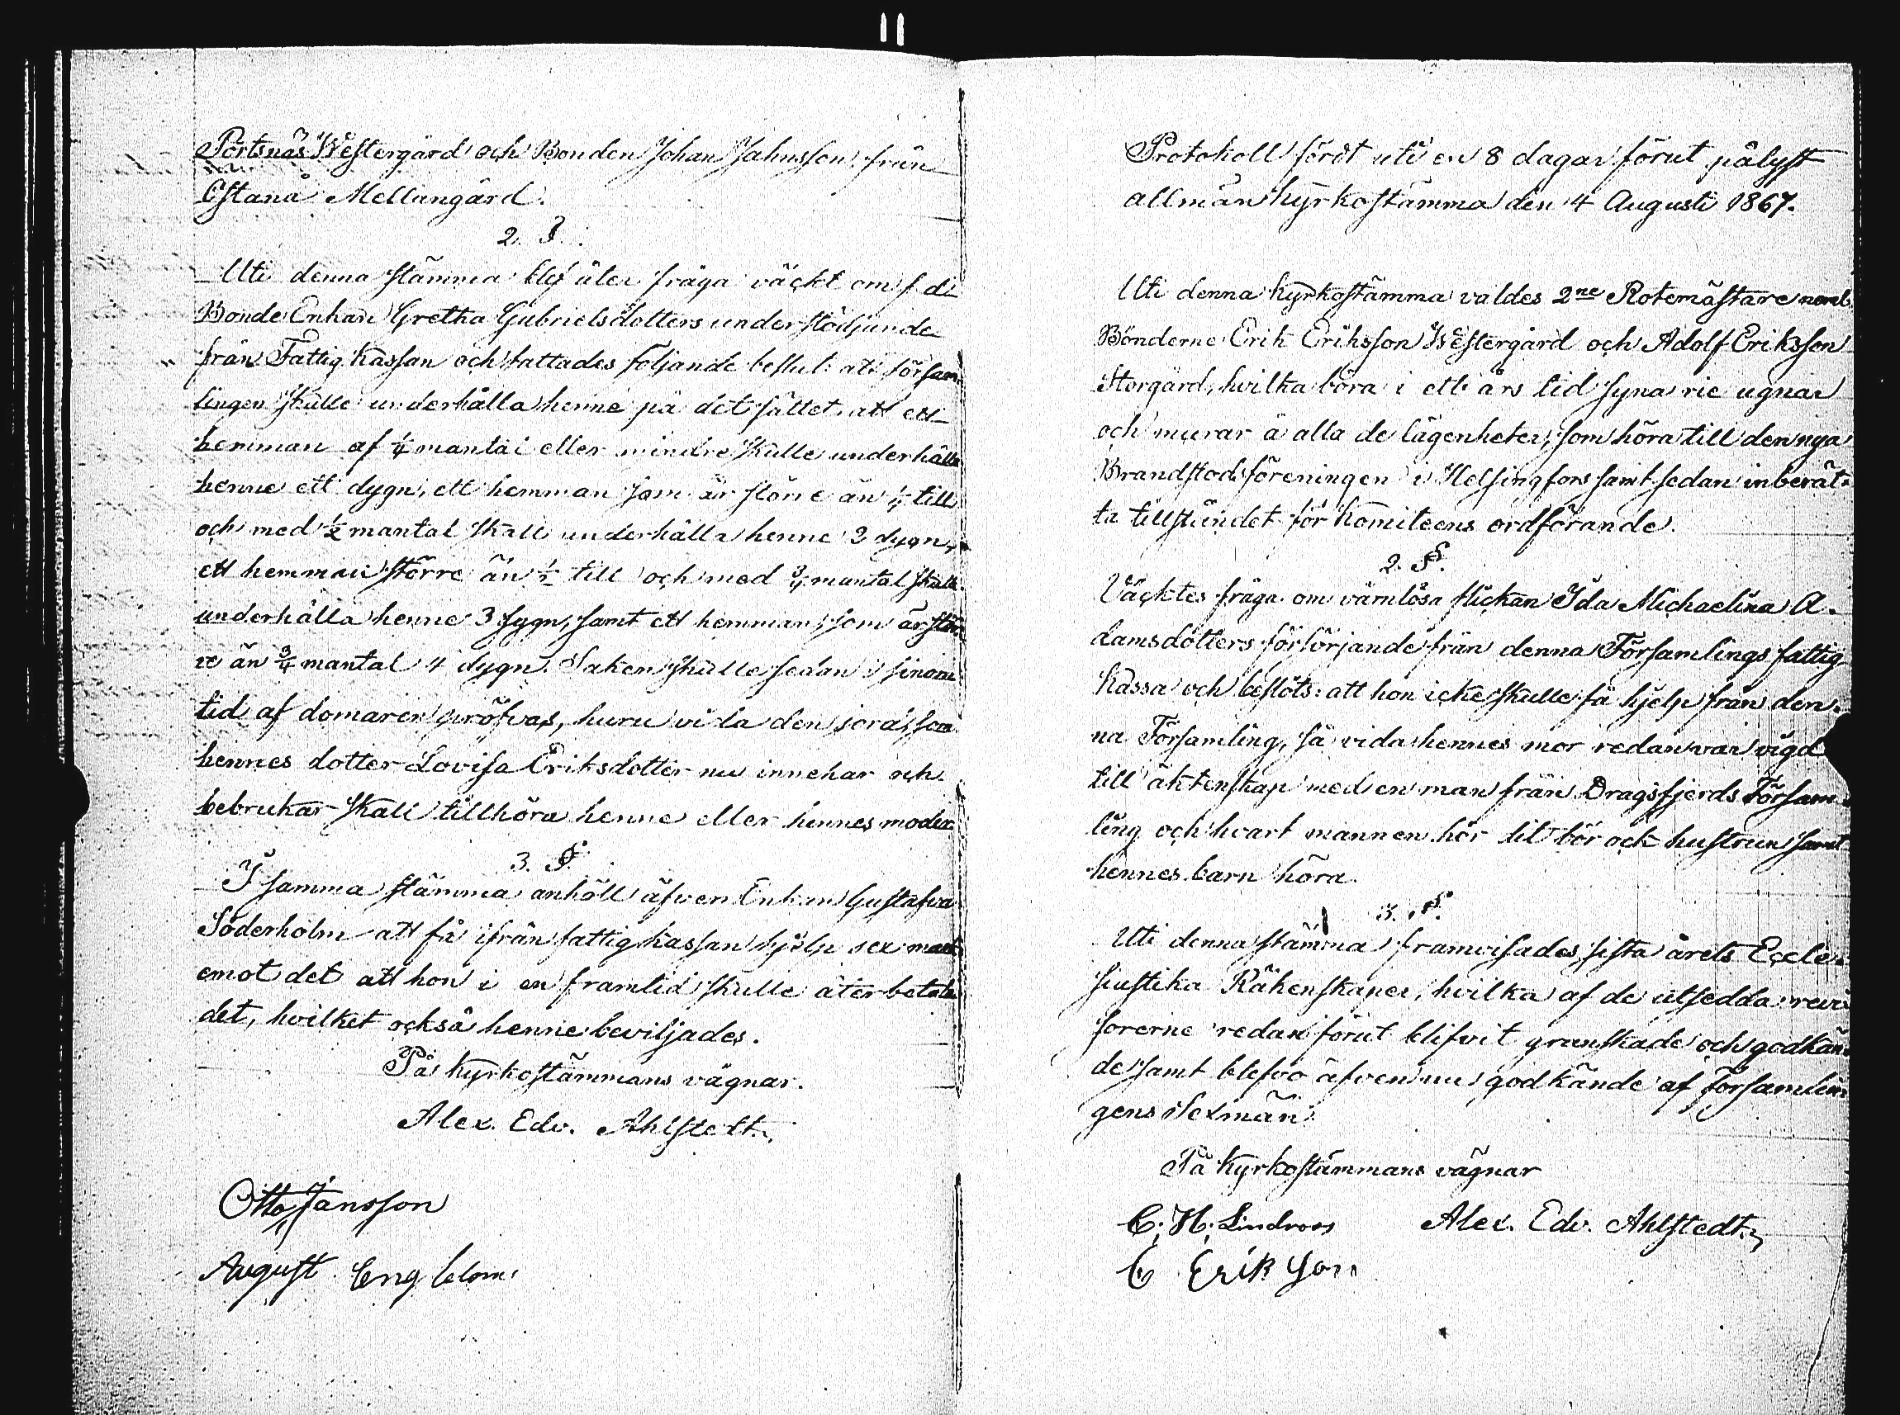 Pörtsnäs Westergård och Bonden Johan Jahnsson från
Östanå Mellangård.
2. §.
Uti denna stämma blef åter fråga väckt om f. d.
Bonde Enkan Gretha Gabrielsdotters understödjande
från Fattig Kassan och fattades följande beslut: att försam-
lingen skulle underhålla henne på det sättet, att ett
hemman af 1/4 mantal eller mindre skulle underhålla
henne ett dygn, ett hemman som är större än 1/4 till
och med 1/2 mantal skall underhålla henne 2 dygn,
ett hemman större än 1/2 till och med 3/4 mantal skall
underhålla henne 3 dygn, samt ett hemman, som är stör-
re än 3/4 mantal 4 dygn. Saken skulle sedan i sinom
tid af domaren pröfvas, huru vida den jord, som
hennes dotter Lovisa Eriksdotter nu innehar och
bebrukar skall tillhöra henne eller hennes moder
3. §.
I samma stämma anhöll äfven Enkan Gustafva
Söderholm att få ifrån fattigkassan hjelp sex mark
emot det att hon i en framtid skulle återbetala
det, hvilket också henne beviljades.
På kyrkostämmans vägnar.
Alex. Edv. Ahlstedt.
Otto Jansson
August Engblom
Protokoll fördt uti en 8 dagar förut pålyst
allmän kyrkostämma den 4 Augusti 1867.
Uti denna kyrkostämma valdes 2ne Rotemästare neml.
Bönderne Erik Eriksson Westergård och Adolf Eriksson
Storgård, hvilka böra i ett års tid syna rie ugnar
och murar å alla de lägenheter, som höra till den nya
Brandstodsföreningen i Helsingfors samt sedan inberät-
ta tillståndet för Komiteens ordförande.
2. §.
Väcktes fråga om värnlösa flickan Ida Michaelina A-
damsdotters försörjande från denna Församlings fattig
kassa och beslöts: att hon icke skulle få hjelp från den-
na Församling, så vida hennes mor redan var vigd
till äktenskap med en man från Dragsfjerds Försam-
ling och hvart mannen hör dit bör ock hustrun samt
hennes barn höra.
3. §.
Uti denna stämma framvisades sista årets Eccle-
siastika Räkenskaper, hvilka af de utsedda revi-
sorerne redan förut blifvit granskade och godkän-
de samt blefvo äfven nu godkände af Församlin-
gens Sexmän.
På kyrkostämmans vägnar
C. H. Lindroos Alex. Edv. Ahlstedt.
E Erikson